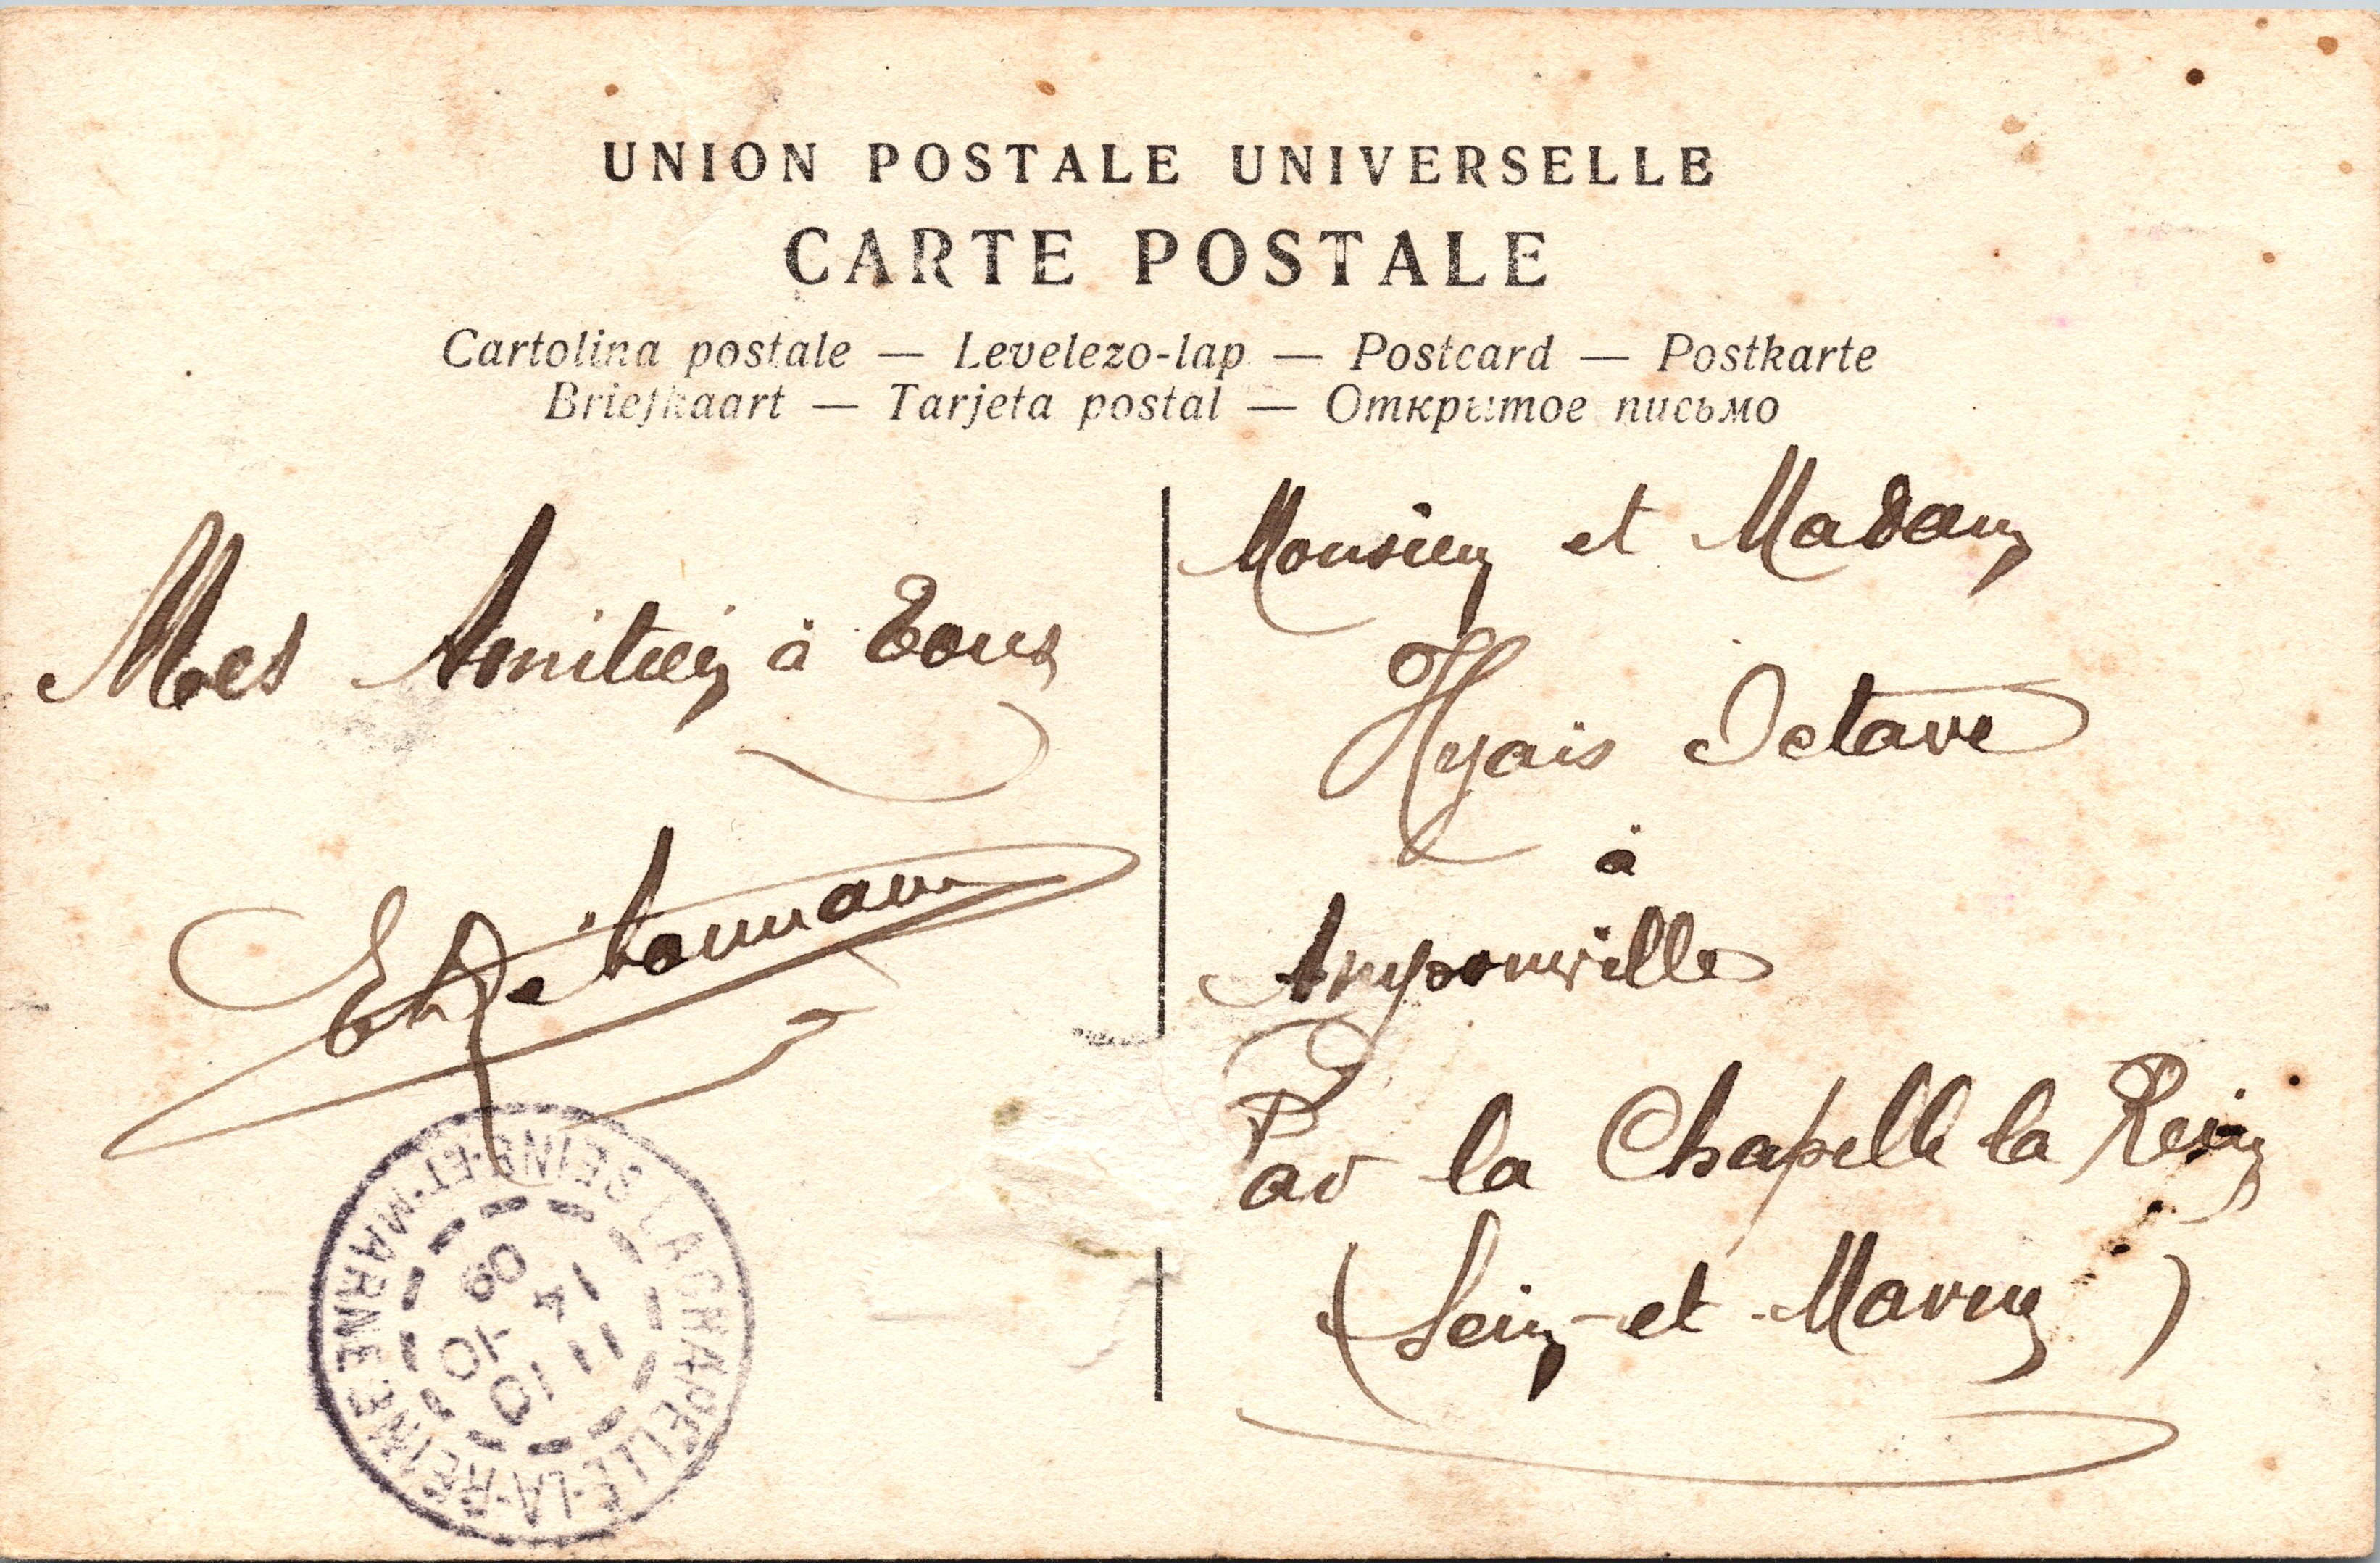 UNION POSTALE UNIVERSELLE
CARTE POSTALE
Cartolina postale — Levelezo-lap — Postcard — Postkarte
Briefkaart — Tarjeta postal — Открытое письмо
Mes Amitiés à Tous
Monsieur et Madame
Hyais Octave
à
Amponville
Par la Chapelle la Reine
(Seine-et-Marne)
LA CHAPELLE-LA-REINE SEINE-ET-MARNE
11 10
4 10
09